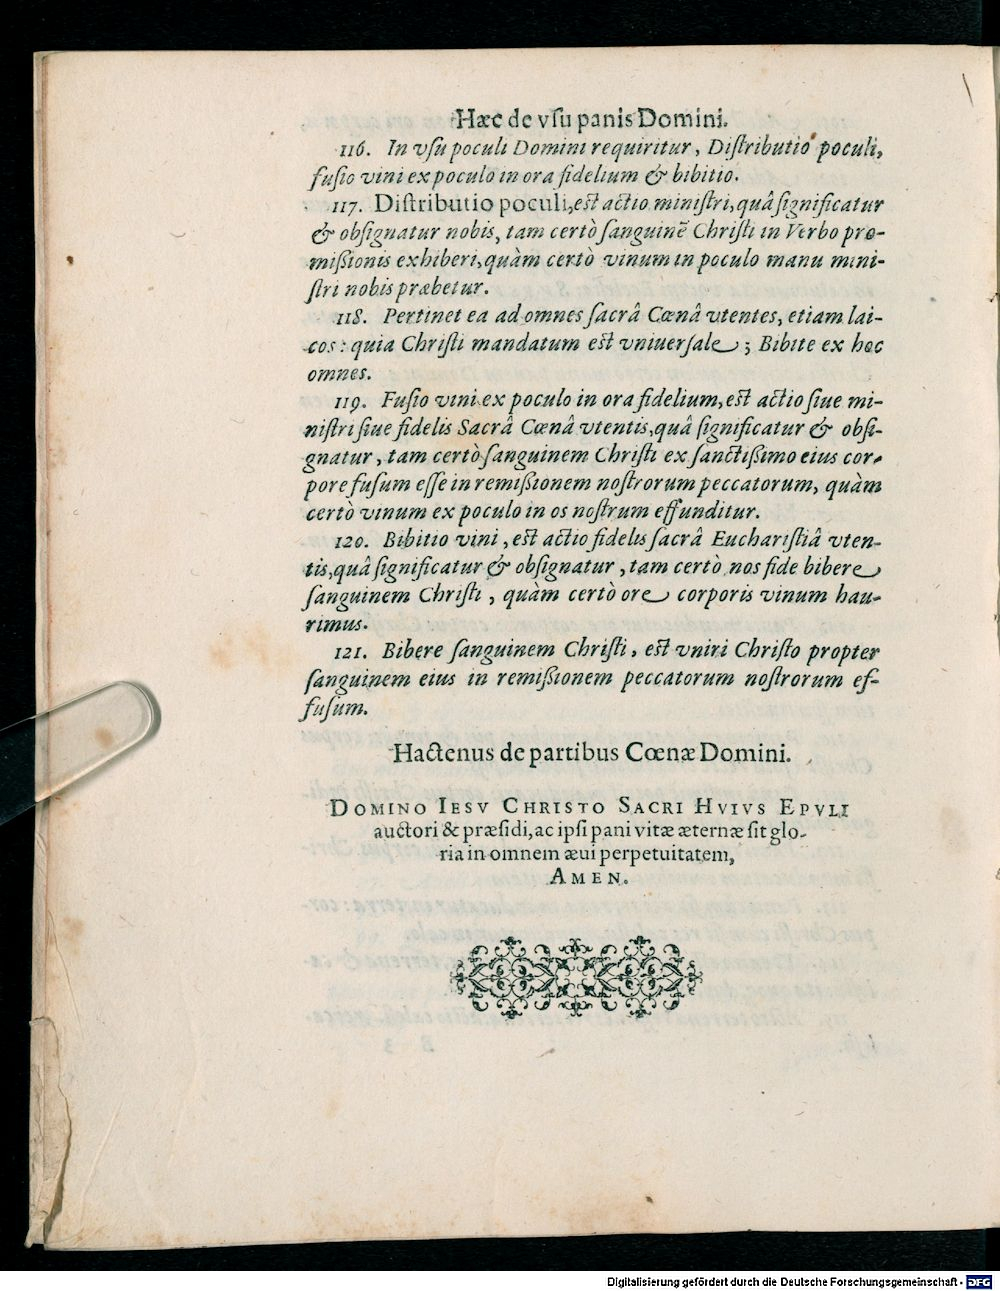 Hæc de vſu panis Domini.
116. In vſu poculi Domini requiritur, Diſtributio poculi,
fuſio vini ex poculo in ora fidelium & bibitio.
117. Diſtributio poculi, eſt actio miniſtri, quâ ſignificatur
& obſignatur nobis, tam certò ſanguinē Chriſti in Verbo pro-
miſsionis exhiberi, quàm certò vinum in poculo manu mini-
ſtri nobis præbetur.
118. Pertinet ea ad omnes ſacrâ Cœnâ vtentes, etiam lai-
cos: quia Chriſti mandatum eſt vniuerſale; Bibite ex hoc
omnes.
119. Fuſio vini ex poculo in ora fidelium, eſt actio ſiue mi-
niſtri ſiue fidelis Sacrâ Cœnâ vtentis, quâ ſignificatur & obſi-
gnatur, tam certò ſanguinem Chriſti ex ſanctiſsimo eius cor-
pore fuſum eſſe in remiſsionem noſtrorum peccatorum, quàm
certò vinum ex poculo in os noſtrum effunditur.
120. Bibitio vini, eſt actio fidelis ſacrâ Euchariſtiâ vten-
tis, quâ ſignificatur & obſignatur, tam certò nos fide bibere
ſanguinem Chriſti, quàm certò ore corporis vinum hau-
rimus.
121. Bibere ſanguinem Chriſti, eſt vniri Chriſto propter
ſanguinem eius in remiſsionem peccatorum noſtrorum ef-
fuſum.
Hactenus de partibus Cœnæ Domini.
DOMINO IESV CHRISTO SACRI HVIVS EPVLI
auctori & præſidi, ac ipſi pani vitæ æternæ ſit glo-
ria in omnem æui perpetuitatem,
AMEN.
Digitalisierung gefördert durch die Deutsche Forschungsgemeinschaft - DFG